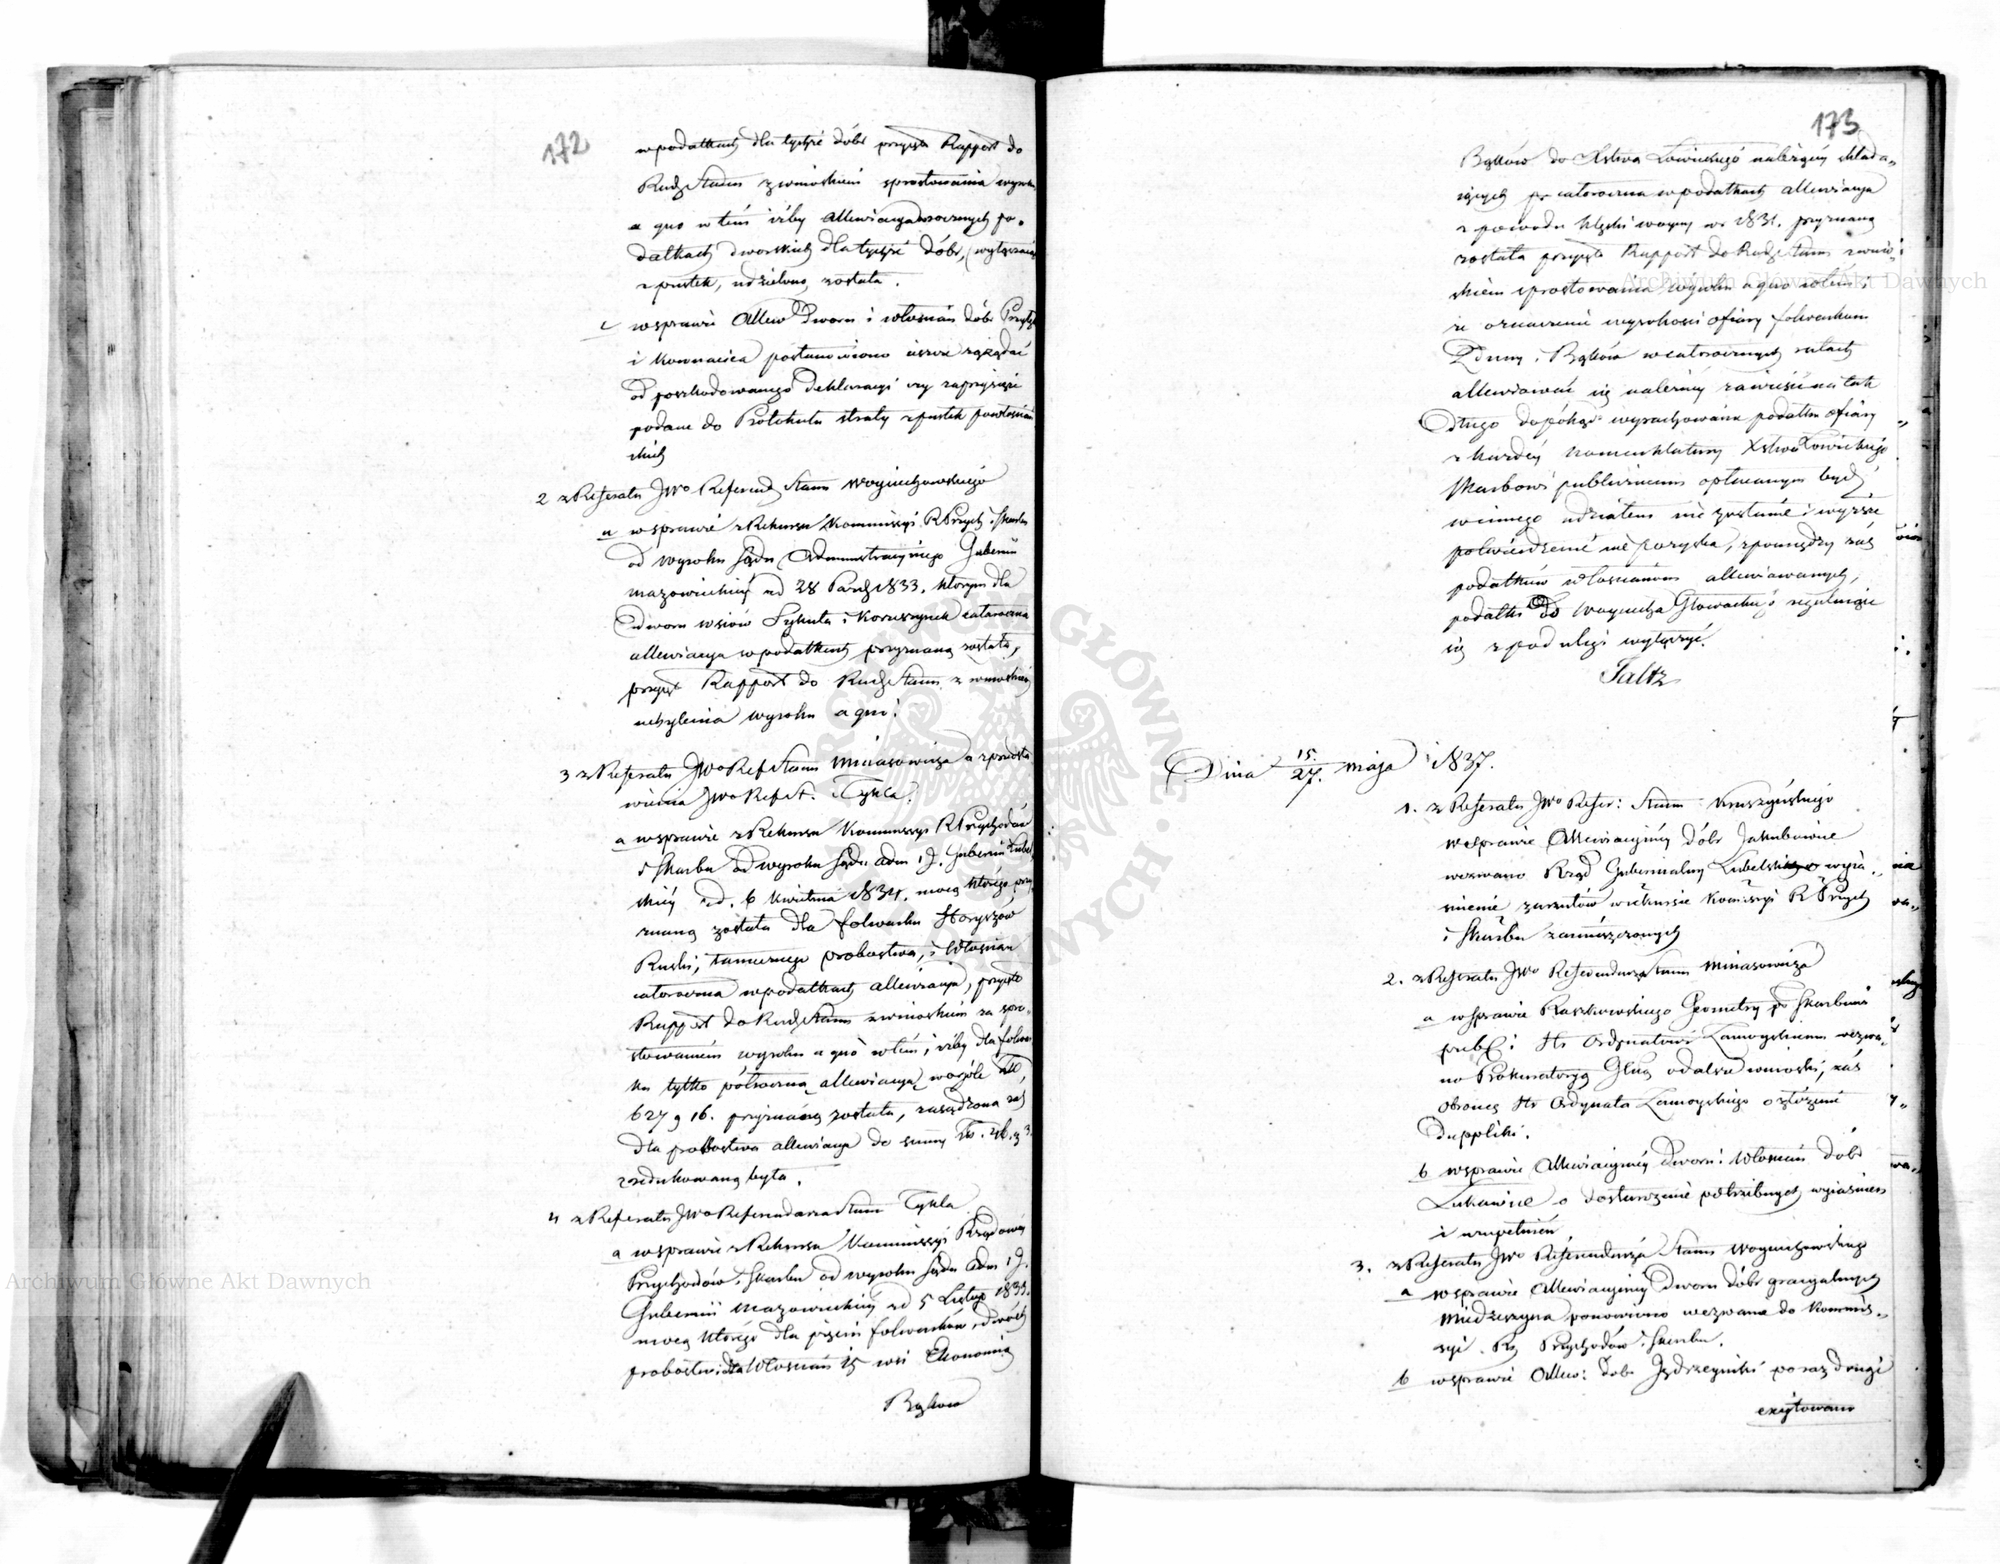 172
w podatkach dla tychże dóbr przyjęto Rapport do
Rady Stanu z wnioskiem sprostowania wyroku
a quo w tem iżby allewiacya w rocznych po-
datkach dworskich dla tychże dóbr, (wyłączając
z pustek, udzieloną została.
c w sprawie Allew Dworu i włościan dóbr Przyłęk
i Kownacica postanowiono iescze zażądać
od poszkodowanego deklaracyi czy zaprzysięże
podane do Protokułu straty z pustek powłościań
skich
2 z Referatu JWo Referend Stanu Woyciechowskiego
a w sprawie z Rekursu Kommissyi R Przych i Skarbu
od wyroku Sądu Administracyjnego Gubernii
Mazowieckiey z d 28 Paźdz 1833. którym dla
Dworu wsiów Szykuta i Koruszynek całoroczna
allewiacya w podatkach przyznaną została,
przyjęto Rapport do Rady Stanu z wnioskiem
uchylenia wyroku a quo.
3 z Referatu JWo Ref Stanu Minasowicza a z przedsta
wienia JWo Ref St. Tykla.
a w sprawie z Rekursu Kommissyi R Przychodów
i Skarbu od wyroku Sądu Adm: J. Gubernii Lubel
skiey z d. 6 Kwietnia 1834. mocą którego przy
znaną została dla folwarku Horyszów
Ruski, tamecznego probostwa, i Włościan
całoroczna w podatkach allewiacya, przyjęto
Rapport do Rady Stanu z wnioskiem za spro-
stowaniem wyroku a quo w tem, iżby dla folwar
ku tylko półroczna allewiacya w ogóle Złł,
627 g 16. przyznaną została, zasądzona zaś
dla probostwa allewiacya do summy
zredukowaną była.
4 z Referatu JWo Referendarza Stanu Tykla
a w sprawie z Rekursu Kommissyi Rządowey
Przychodów i Skarbu od wyroku Sądu Adm: J.
Gubernii Mazowieckiey z d 5 Listop 1833.
mocą którego dla pięciu folwarków, dwóch
probostw i dla Włościan 15 wsi Ekonomią
Bąków
173
Bąków do Xstwa Łowickiego należącey składa-
iących po całoroczna w podatkach allewiacya
z powodu klęski woyny w r 1831. przyznaną
została przyjęto Rapport do Rady Stanu z wnio-
skiem sprostowania wyroku a quo w tem,
że oznaczenie wysokości ofiary folwarkom
Zduny i Bąków w całorocznych ratach
allewiować się należney zawiesić na tak
długo dopókąd wyrachowanie podatku ofiary
z każdey nomenklatury Xstwa Łowickiego
Skarbowi publicznemu opłacanym być
winnego udziałem nie zostanie i wyższe
potwierdzenie nie pozyska, z pomiędzy zaś
podatków włościanom allewiowanych,
podatki do Woyciecha Głowackiego regulujące
się z pod ulgi wyłączyć.
Saltz
Dnia 15/27. maja 1837.
1. z Referatu JWo Refer: Stanu Kruszyńskiego
w sprawie Allewiacyiney dóbr Jakubowice
wezwano Rząd Gubernialny Lubelski o wyja-
śnienie zarzutów w rekursie Kommissyi R Przych
i Skarbu zamieszczonych
2. z Referatu JWo Referendarza Stanu Minasowicza
a w sprawie Raszkowskiego Geometry po Skarbowi
publ: i Hr Ordynatowi Zamoyskiemu wezwa-
no Prokuratoryą Głną o dalsze wnioski, zaś
obrońcę Hr Ordynata Zamoyskiego o złożenie
Duppliki.
b w sprawie Allewiacyiney Dworu i Włościan dóbr
Łukawice o dostarczenie potrzebnych wyiaśnień
i uzupełnień
3. z Referatu JWo Referendarza Stanu Woyciechowskiego
a w sprawie Allewiacyiney Dworu dóbr gracyalnych
Miedzeszyna ponowiono wezwane do Kommis-
syi Rz Przychodów i Skarbu.
b w sprawie Allew: dóbr Jędrzeyniki po raz drugi
excytowano
Archiwum Główne Akt Dawnych
Archiwum Główne Akt Dawnych